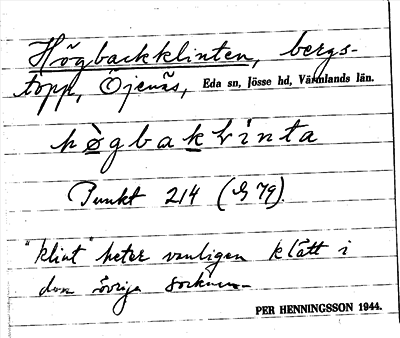 Högbackklinten, bergs-
topp, Öjenäs, Eda sn, Jösse hd, Värmlands län.
hø̀gbakkḷinta
Punkt 214 (G 79).
"klint" heter vanligen klätt i
den övriga socknen
PER HENNINGSSON 1944.